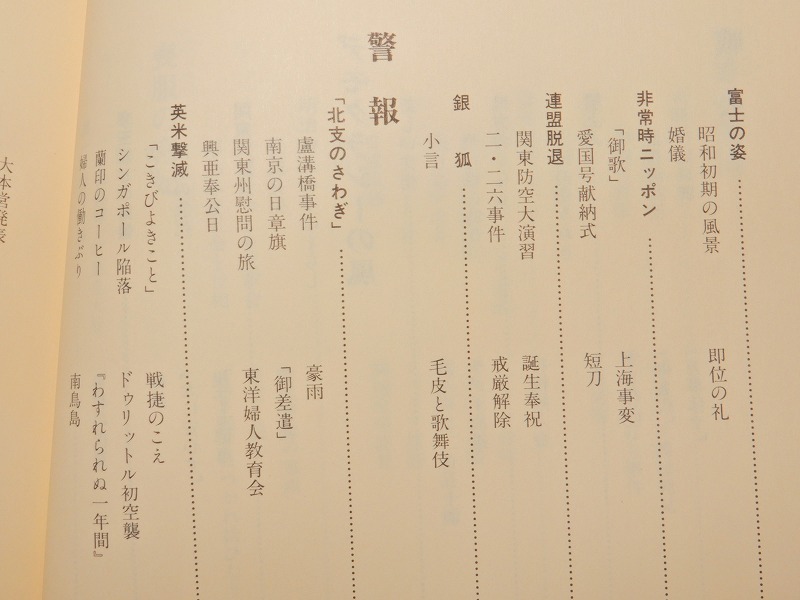 富士の姿
昭和初期の風景
即位の礼
婚儀
非常時ニッポン
「御歌」
上海事変
愛国号献納式
短刀
連盟脱退
関東防空大演習
誕生奉祝
二・二六事件
戒厳解除
銀狐
小言
毛皮と歌舞伎
警報
「北支のさわぎ」
盧溝橋事件
豪雨
南京の日章旗
「御差遣」
関東州慰問の旅
東洋婦人教育会
興亜奉公日
英米撃滅
「こきびよきこと」
戦捷のこえ
シンガポール陥落
ドゥリットル初空襲
蘭印のコーヒー
『わすれられぬ一年間』
婦人の働きぶり
南鳥島
大本営発表